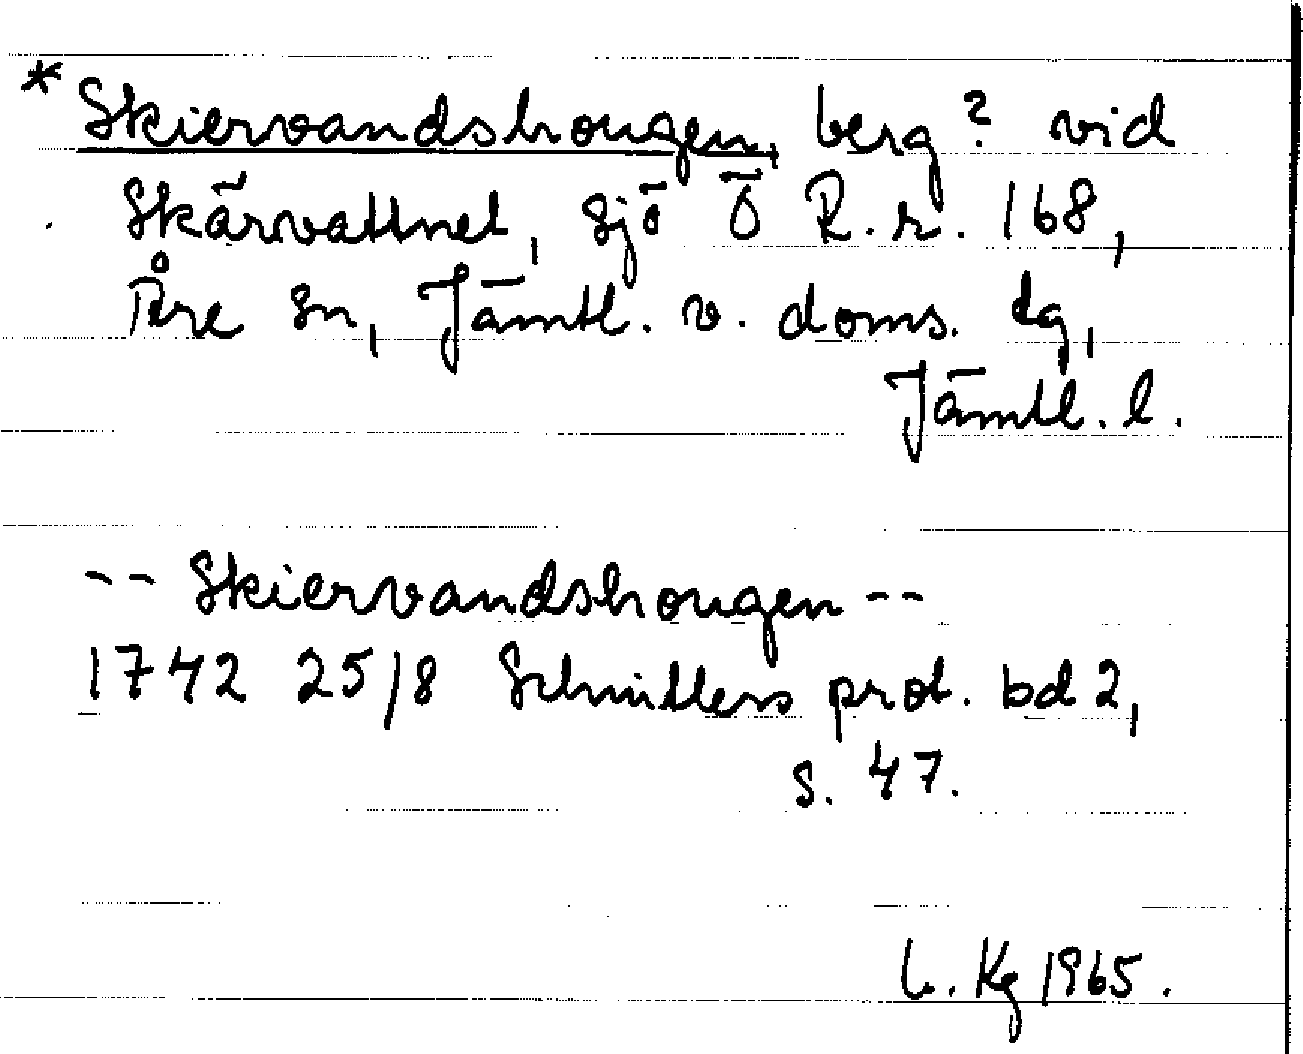 * Skiervandshougen, berg? vid
Skärvattnet, sjö Ö R.r. 168,
Åre sn, Jämtl. v. doms. tg,
Jämtl. l.
-- Skiervandshougen --
1742 25/8 Schnitlers prot. bd 2,
s. 47.
L. Kg 1965.